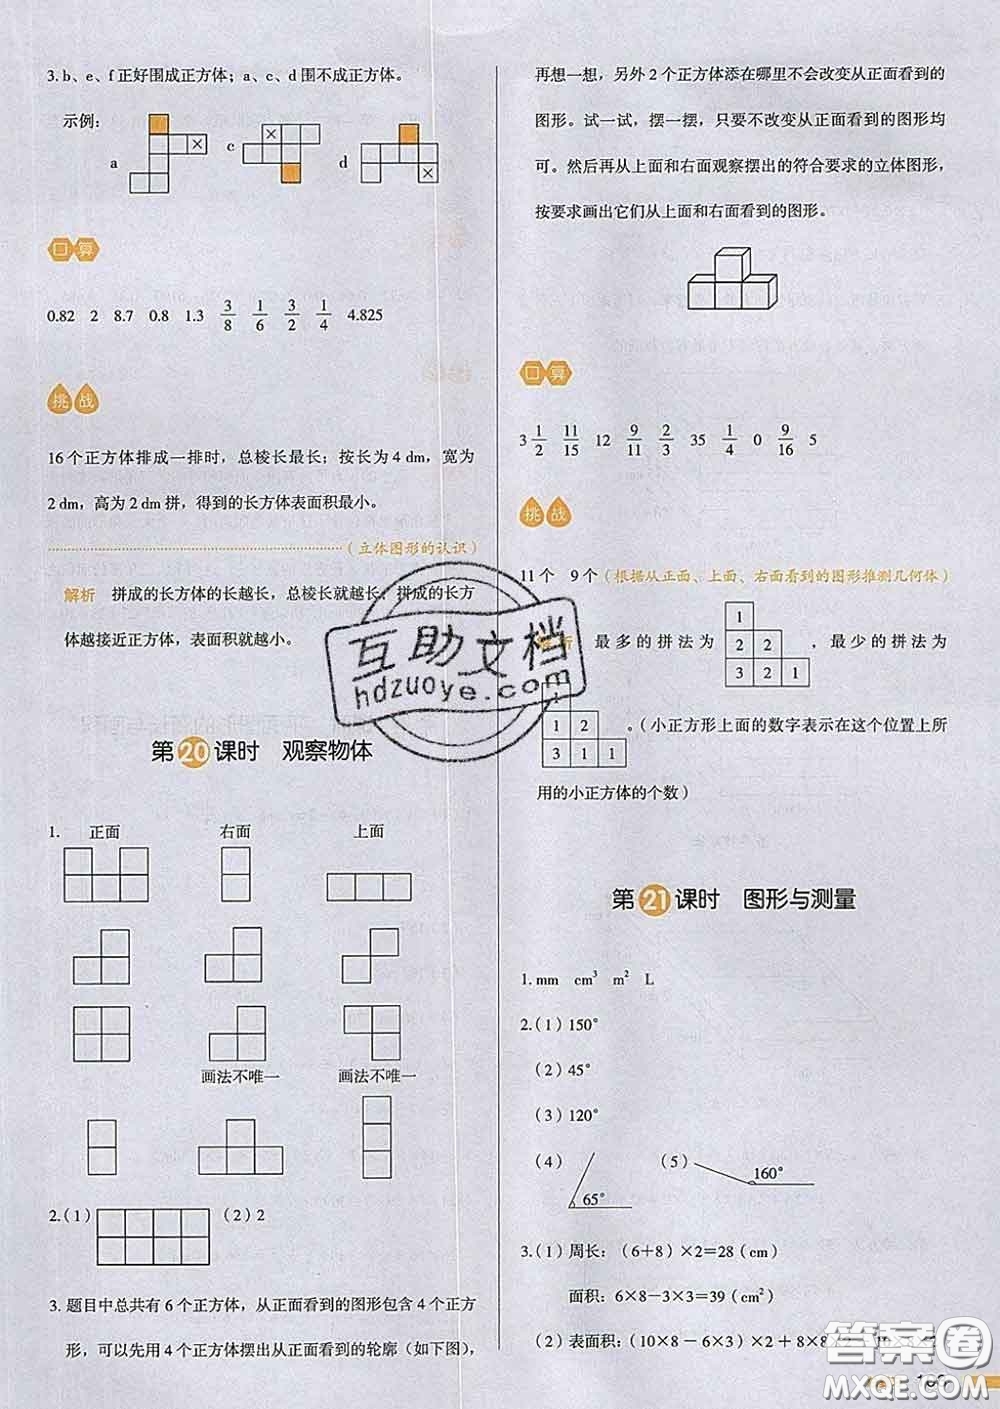 3. b、e、f 正好围成正方体；a、c、d 围不成正方体。
示例：
a
×
c
×
d
×
口算
0.82 2 8.7 0.8 1.3 3/8 1/6 3/2 1/4 4.825
挑战
16 个正方体排成一排时，总棱长最长；按长为 4 dm，宽为
2 dm，高为 2 dm 拼，得到的长方体表面积最小。
（立体图形的认识）
解析 拼成的长方体的长越长，总棱长就越长；拼成的长方
体越接近正方体，表面积就越小。
第20课时 观察物体
1. 正面 右面 上面
画法不唯一 画法不唯一
2.（1） （2）2
3. 题目中总共有 6 个正方体，从正面看到的图形包含 4 个正方
形，可以先用 4 个正方体摆出从正面看到的轮廓（如下图），
再想一想，另外 2 个正方体添在哪里不会改变从正面看到的
图形。试一试，摆一摆，只要不改变从正面看到的图形均
可。然后再从上面和右面观察摆出的符合要求的立体图形，
按要求画出它们从上面和右面看到的图形。
口算
3 1/2 11/15 12 9/11 2/3 35 1/4 0 9/16 5
挑战
11 个 9 个（根据从正面、上面、右面看到的图形推测几何体）
解析 最多的拼法为
1
2 2
3 2 1
，最少的拼法为
1
1 2
3 1 1
。（小正方形上面的数字表示在这个位置上所
用的小正方体的个数）
第21课时 图形与测量
1. mm cm³ m² L
2.（1）150°
（2）45°
（3）120°
（4）
65°
（5）
160°
3.（1）周长：（6＋8）×2＝28（cm）
面积：6×8－3×3＝39（cm²）
（2）表面积：（10×8－6×3）×2＋8×8
互助文档
hdzuoye.com
答案圈
MXQE.COM